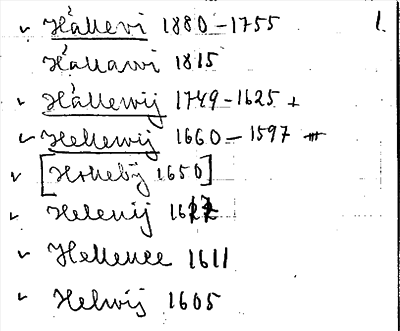 ✓ Hállevi 1880-1755 1.
Hállavi 1815
✓ Hállevij 1749-1625 +
✓ Hellevij 1660-1597
✓ [Holleby 1650]
✓ Helenij
✓ Hellenee 1611
✓ Helvij 1605